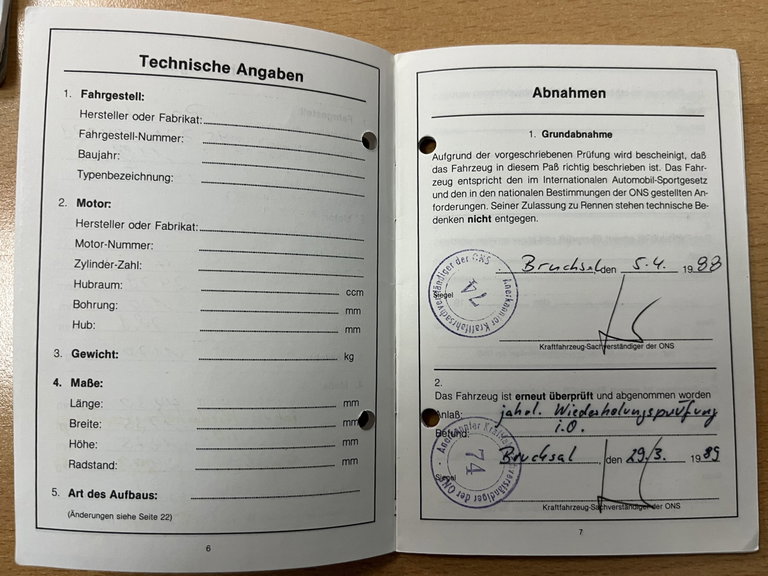 Technische Angaben
1. Fahrgestell:
Hersteller oder Fabrikat:
Fahrgestell-Nummer:
Baujahr:
Typenbezeichnung:
2. Motor:
Hersteller oder Fabrikat:
Motor-Nummer:
Zylinder-Zahl:
Hubraum: ccm
Bohrung: mm
Hub: mm
3. Gewicht: kg
4. Maße:
Länge: mm
Breite: mm
Höhe: mm
Radstand: mm
5. Art des Aufbaus:
(Änderungen siehe Seite 22)
6
Abnahmen
1. Grundabnahme
Aufgrund der vorgeschriebenen Prüfung wird bescheinigt, daß
das Fahrzeug in diesem Paß richtig beschrieben ist. Das Fahr-
zeug entspricht den im Internationalen Automobil-Sportgesetz
und den in den nationalen Bestimmungen der ONS gestellten An-
forderungen. Seiner Zulassung zu Rennen stehen technische Be-
denken nicht entgegen.
Bruchsal den 5.4. 1988
Siegel
Anerkannter Kraftfahrsachverständiger der ONS
74
Kraftfahrzeug-Sachverständiger der ONS
2.
Das Fahrzeug ist erneut überprüft und abgenommen worden
Anlaß: jährl. Wiederholungsprüfung
Befund: i.O.
Bruchsal, den 29.3. 1989
Siegel
Anerkannter Kraftfahrsachverständiger der ONS
74
Kraftfahrzeug-Sachverständiger der ONS
7